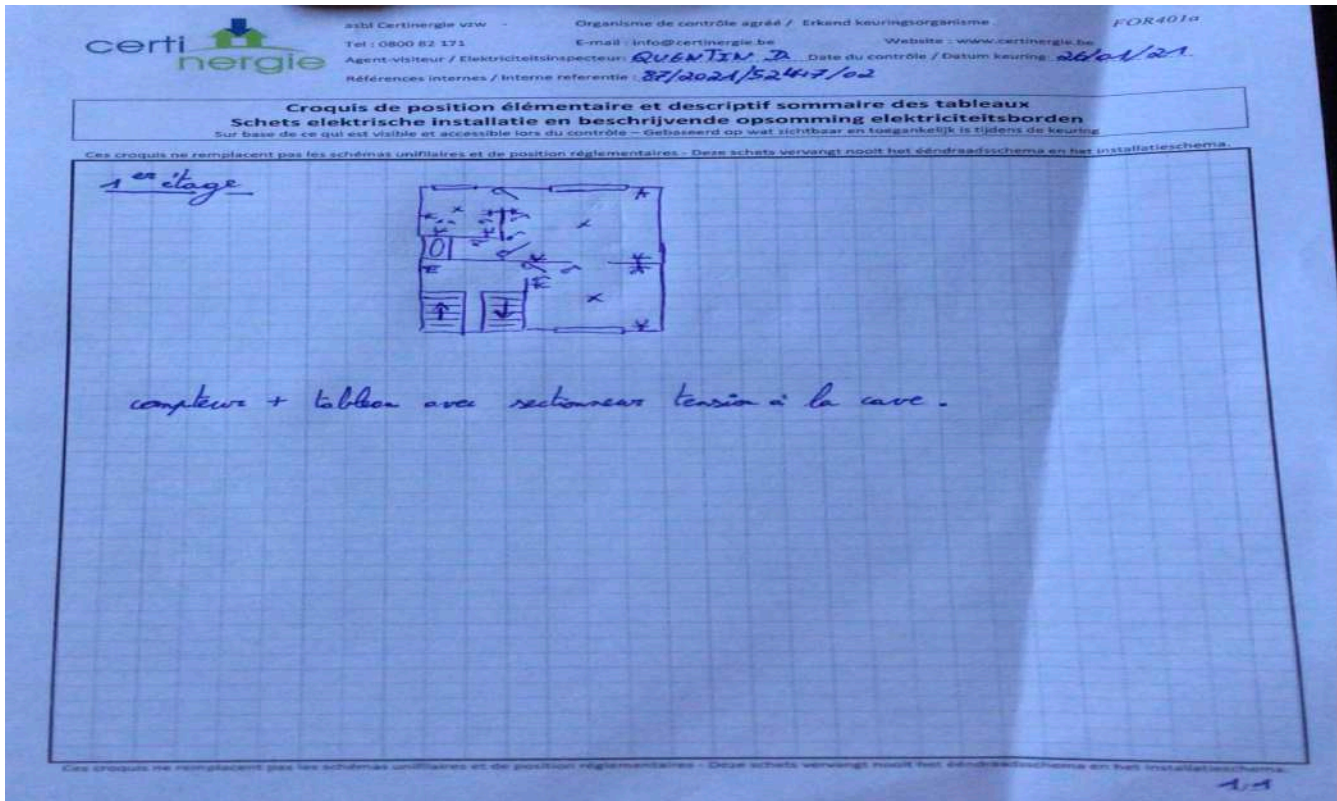 certi
nergie
asbl Certinergie vzw - Organisme de contrôle agréé / Erkend keuringsorganisme FOR401a
Tel : 0800 82 171 E-mail : info@certinergie.be Website : www.certinergie.be
Agent-visiteur / Elektriciteitsinspecteur: QUENTIN D. Date du contrôle / Datum keuring: 26/01/21
Références internes / Interne referentie : 87/2021/52447/02
Croquis de position élémentaire et descriptif sommaire des tableaux
Schets elektrische installatie en beschrijvende opsomming elektriciteitsborden
Sur base de ce qui est visible et accessible lors du contrôle – Gebaseerd op wat zichtbaar en toegankelijk is tijdens de keuring
Ces croquis ne remplacent pas les schémas unifilaires et de position réglementaires - Deze schets vervangt nooit het ééndraadsschema en het installatieschema.
1er étage
compteur + tableau avec sectionneur tension à la cave.
Ces croquis ne remplacent pas les schémas unifilaires et de position réglementaires - Deze schets vervangt nooit het ééndraadsschema en het installatieschema.
1/1